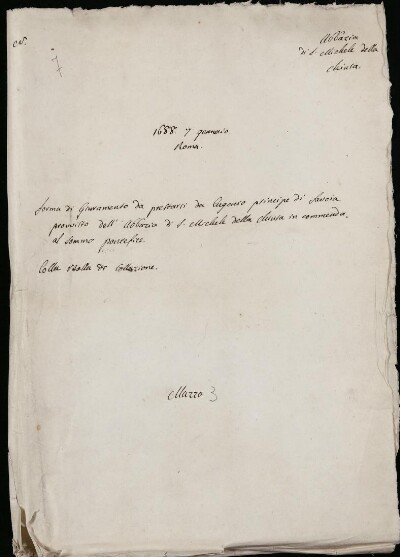 Abbazia
di S. Michele della
Chiusa.
7
1688 7 gennaio
Roma.
Forma di Giuramento da prestarsi da Eugenio principe di Savoia
provvisto dell' Abbazia di S. Michele della Chiusa in commenda,
al sommo pontefice.
Colla Bolla di collazione.
Mazzo 3